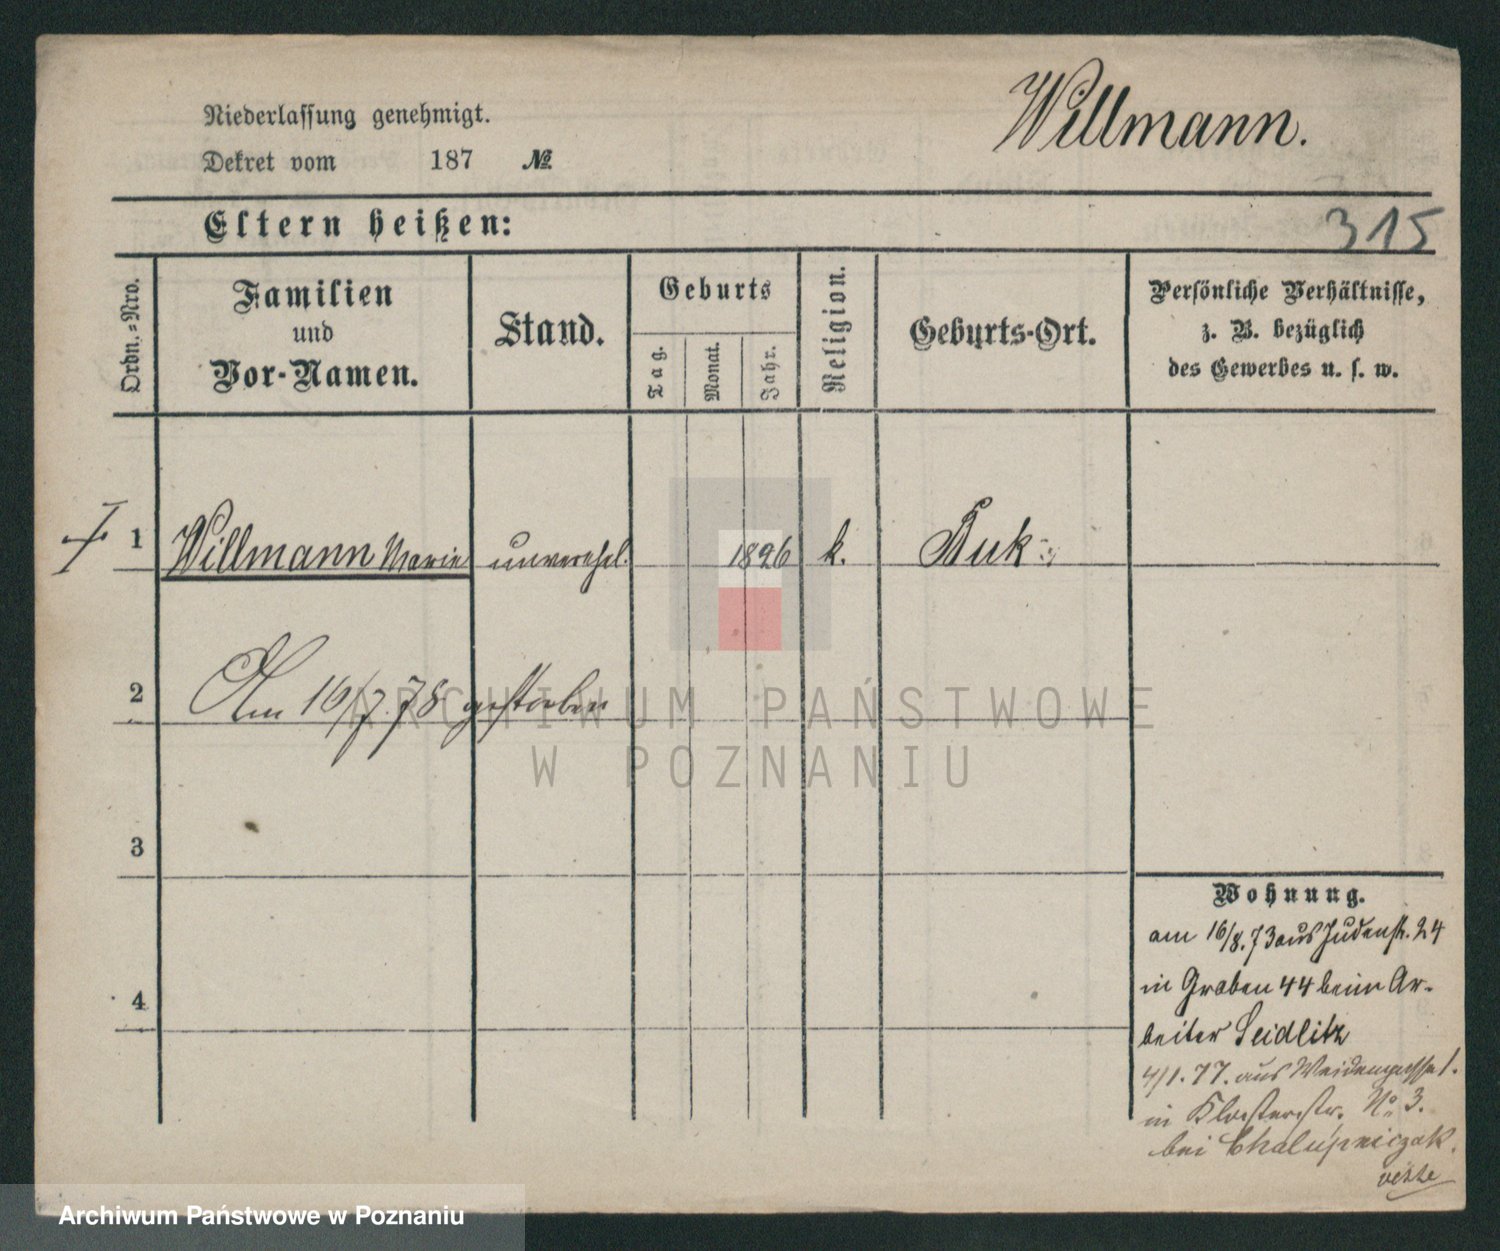 Niederlassung genehmigt.
Dekret vom 187 №
Willmann.
Eltern heißen:
315
Ordn.=Nro.
Familien
und
Vor-Namen.
Stand.
Geburts
Tag.
Monat.
Jahr.
Religion.
Geburts-Ort.
Persönliche Verhältnisse,
z. B. bezüglich
des Gewerbes u. s. w.
1 Willmann Marie unverehel. 1826 k. Buk
2 Am 16/7.78 gestorben
3
4
Wohnung.
am 16/8.73 aus Judenstr. 24
in Graben 44 beim Ar-
beiter Seidlitz
4/1.77. aus Weidengasse 1.
in Klosterstr. No 3.
bei Chalupniczak.
ARCHIWUM PAŃSTWOWE
W POZNANIU
Archiwum Państwowe w Poznaniu